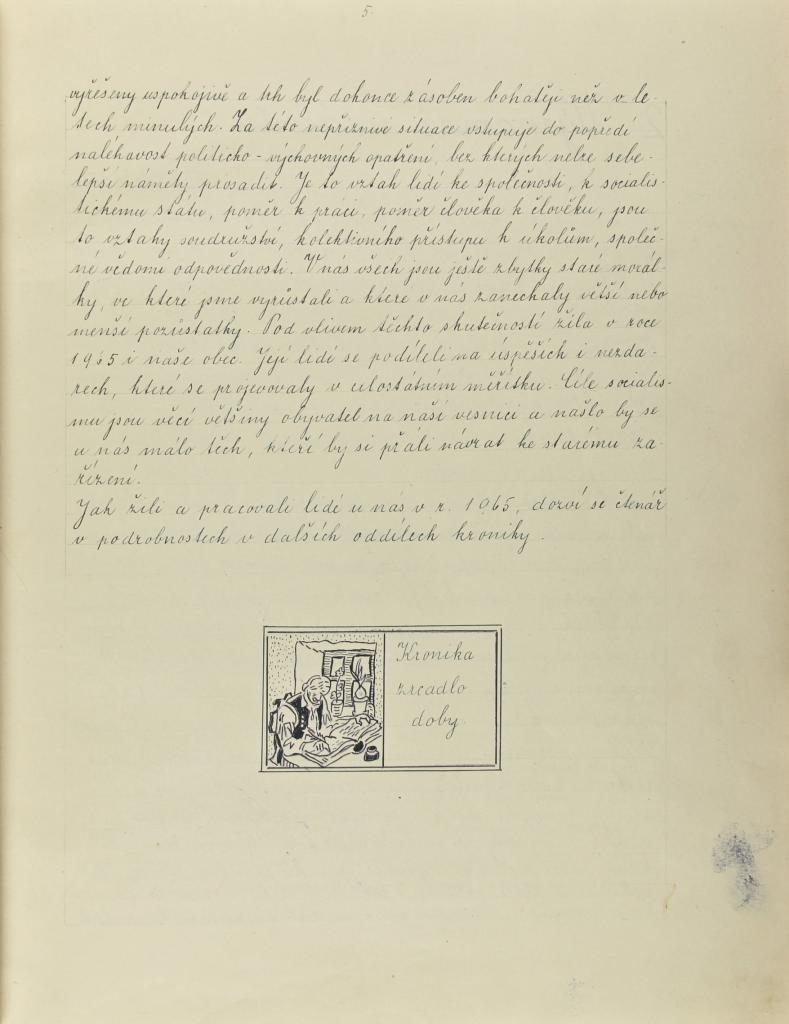 5.
vyřešeny uspokojivě a trh byl dokonce zásoben bohatěji než v le-
tech minulých. Za této nepříznivé situace vstupuje do popředí
naléhavost politicko-výchovných opatření, bez kterých nelze sebe-
lepší náměty prosadit. Je to vztah lidí ke společnosti, k socialis-
tickému státu, poměr k práci, poměr člověka k člověku, jsou
to vztahy soudružství, kolektivního přístupu k úkolům, společ-
né vědomí odpovědnosti. V nás všech jsou ještě zbytky staré morál-
ky, ve které jsme vyrůstali a které v nás zanechaly větší nebo
menší pozůstatky. Pod vlivem těchto skutečností žila v roce
1965 i naše obec. Její lidé se podíleli na úspěších i nezda-
rech, které se projevovaly v celostátním měřítku. Cíle socialis-
mu jsou věcí většiny obyvatel na naší vesnici a našlo by se
u nás málo těch, kteří by si přáli návrat ke starému za-
řízení.
Jak žili a pracovali lidé u nás v r. 1965, dozví se čtenář
v podrobnostech v dalších oddílech kroniky.
Kronika
zrcadlo
doby.